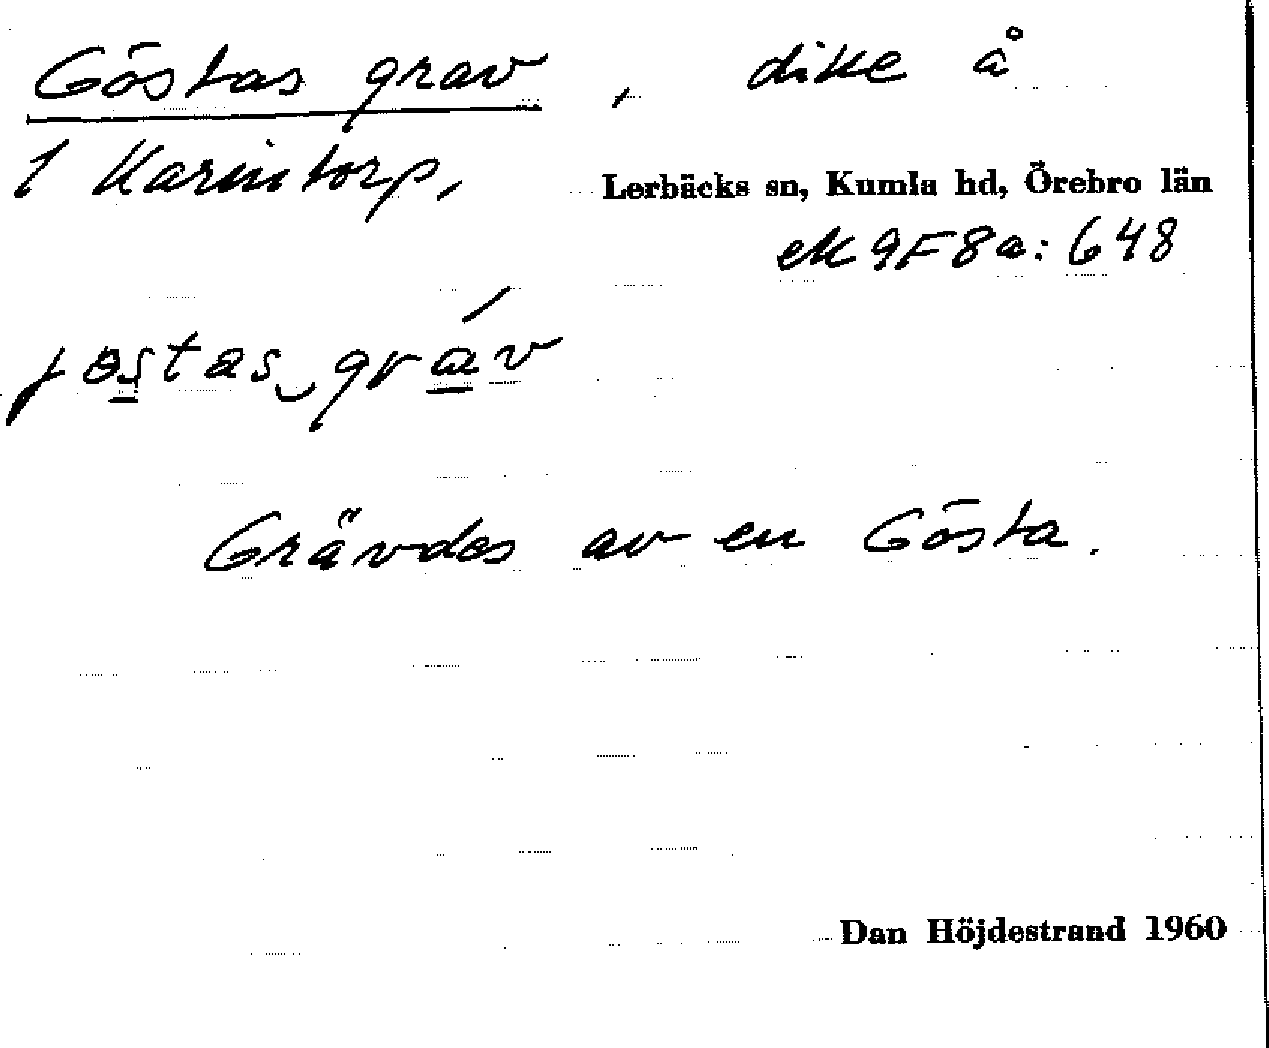 Göstas grav, dike å
1 Karintorp, Lerbäcks sn, Kumla hd, Örebro län
ek 9F8a: 648
jɵstas‿gráv
Grävdes av en Gösta.
Dan Höjdestrand 1960